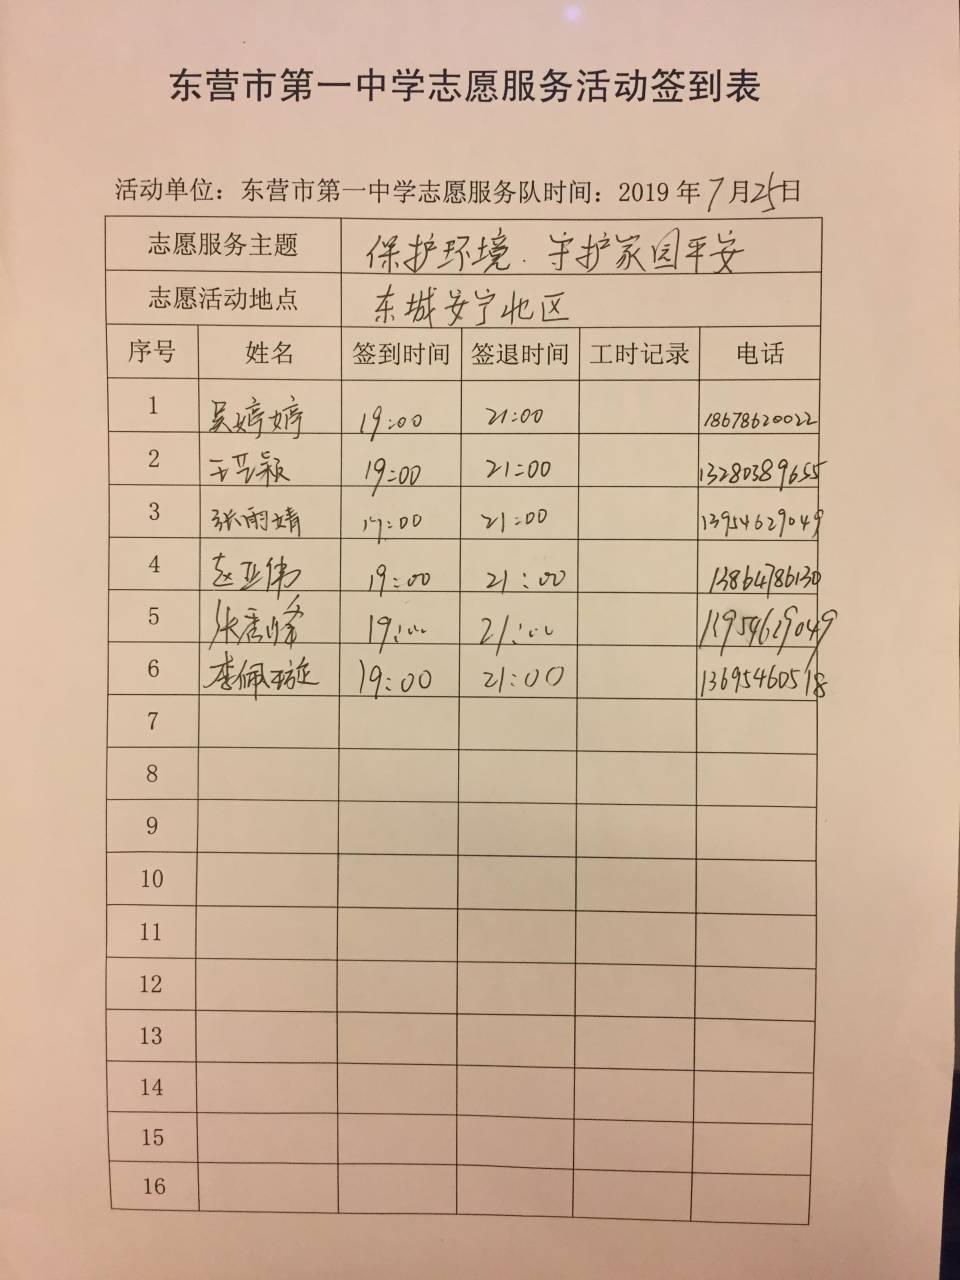 东营市第一中学志愿服务活动签到表
活动单位：东营市第一中学志愿服务队时间：2019年7月25日
志愿服务主题 保护环境.守护家园平安
志愿活动地点 东城安宁北区
序号 姓名 签到时间 签退时间 工时记录 电话
1 吴婷婷 19:00 21:00 18678620022
2 19:00 21:00 13280389655
3 张雨婧 19:00 21:00 13954629049
4 赵亚伟 19:00 21:00 13864786130
5 19:00 21:00 13954629049
6 李佩璇 19:00 21:00 13695460518
7
8
9
10
11
12
13
14
15
16